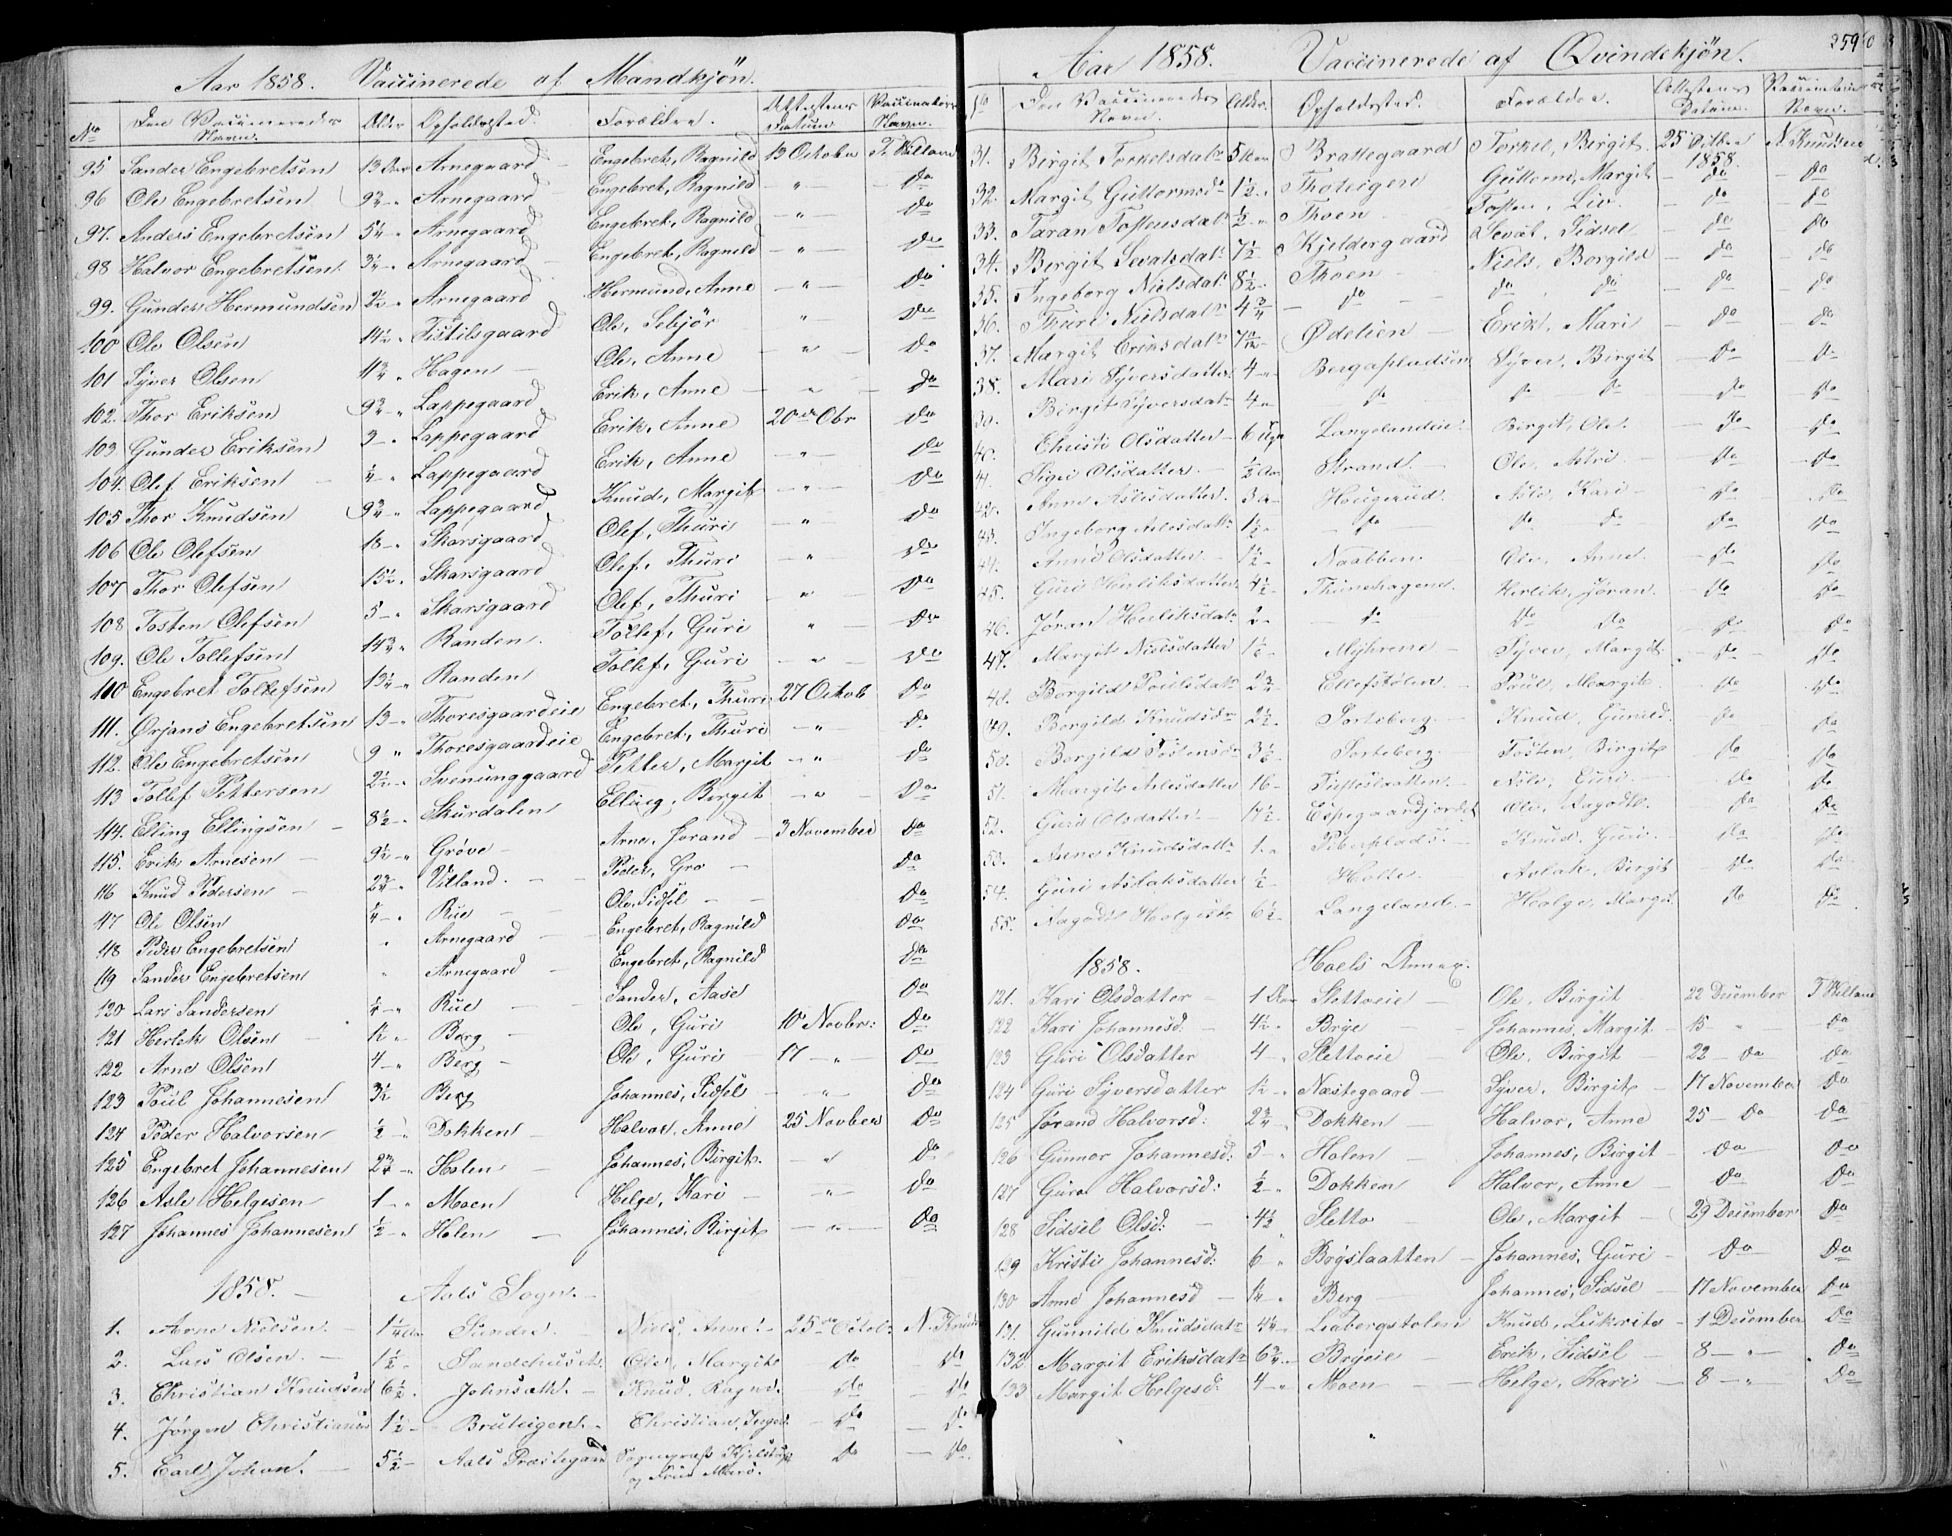 Aar 1858. Vaccinerede af Mandkjön.
No Den Vaccineredes Navn. Alder Opholdssted. Forældre. Attestens Datum. Vaccinateurs Navn.
95 Sander Engebretsen 13 Aar Arnegaard Engebret, Ragnild 13 October T. Villand
96 Ole Engebretsen Arnegaard Engebret, Ragnild — " — Do
97. Anders Engebretsen Arnegaard Engebret, Ragnild — " — Do
98 Halvor Engebretsen Arnegaard Engebret, Ragnild — " — Do
99. Gunder Hermundsen Arnegaard Hermund, Anne — " — Do
100 Ole Olsen 14½ Tistilsgaard Ole, Sebjör " Do
101 Syver Olsen Hagen — Ole, Anne — " — Do
102. Thor Eriksen Lappegaard Erik, Anne — " — Do
103 Gunder Eriksen 3 Lappegaard Erik, Anne 20de Obr Do
104. Olef Eriksen Lappegaard Erik, Anne — " — Do
105 Thor Knudsen Lappegaard Knud, Margit — " — Do
106 Ole Olefsen 18 Skarsgaard Olef, Thuri — " Do
107 Thor Olefsen 15½ Skarsgaard Olef, Thuri — " Do
108 Tosten Olefsen 5 — Skarsgaard Olef, Thuri — " — Do
109. Ole Tollefsen Randen. Tollef, Guri " Do
110 Engebret Tollefsen Randen Tollef, Guri — " — Do
111. Ørjans Engebretsen 13 — Thoresgaardeie Engebret, Thuri 27 Octob Do
112. Ole Engebretsen 9 " Thoresgaardeie Engebret, Thuri — " — Do
113 Tollef Pettersen 2½ Svenunggaard Petter, Margit — " — Do
114. Elling Ellingsen — 8½ Skurdalen Elling, Birgit — " — Do
115. Erik Arnesen — 9½ Grøve — Arne, Jorand — 3 November Do
116 Knud Pedersen — Villand. — Peder, Gro — Do
117 Ole Olsen Rue — Ole, Sidsel — Do
118 Peder Engebretsen " Arnegaard — Engebret, Ragnild Do
119 Sander Engebretsen " Arnegaard — Engebret, Ragnild Do
120 Lars Sandersen Rue — Sander, Aase Do
121 Herlek Olsen — Berg — Ole, Guri 10 Novbr: Do
122 Arne Olsen 4 — Berg — Ole, Guri 17 — " — Do
123 Poul Johannesen Berg Johannes, Sidsel — " — Do
124 Peder Halvorsen ½ Dokken — Halvor, Anne 25 Novber Do
125 Engebret Johannesen Holen — Johannes, Birgit. — " Do
126 Asle Helgesen 1 — " Moen Helge, Kari — — " — Do
127 Johannes Johannesen ½ — " Holen — Johannes, Birgit — " — Do
1858. — Aals Sogn. —
1. Arne Nielsen. — Sundre. Niels, Anne. — 25de Octob: N. Knud
2. Lars Olsen. — 1½ Sandehuset. Ole, Margit Do Do
3. Christian Knudsen 6½ Johnsæth. — Knud, Ragn. Do — Do
4. Jørgen Christiansen 1½ — Bruteigen. — Christian, Inge — Do — Do
5. Carl Johan. — 5½ — Aals Præstegaard Sognepræst Kjelstrup Do — Do
og Frue Marö.
259
Aar 1858. Vaccinerede af Qvindekjön.
No Den Vaccineredes Navn. Alder. Opholdssted. Forældre. Attestens Datum. Vaccinateurs Navn.
31. Birgit Torkelsdatr 5 Aar Brattegaard Torkel, Birgit 25 Octber 1858. N. Knudsen
32. Margit Guttormsd. 1½ Thoteigen Guttorm, Margit — Do — Do
33. Taran Tostensdatr ½ Thoen — Tosten, Liv. — Do Do
34. Bergit Sevatsdatr 7½ Kjeldergaard Sevat, Sidsel — Do — Do
35. Ingeborg Nielsdatr 8½ Thoen — Niels, Borgild — Do — Do
36. Thuri Nielsdatr 4¾ — Do — Do Do — Do — Do
37. Margit Eriksdatr Ødelien — Erik, Mari — Do — Do
38. Mari Syversdatter 4 Bergapladsen Syver, Birgit — Do — Do
39. Birgit Syversdatr 4 Do — Do — Do — Do — Do
40. Christi Olsdatter — 6 Uger Langelandeie. Birgit, Ole. — Do — Do
41. Sigri Olsdatter. — ½ Aar Strand. — Ole, Astri — — Do — Do
42. Anne Aslesdatter. 3 Haugerud. Asle, Kari — Do — Do
43. Ingeborg Aslesdatr 1½ Do Do Do Do — Do
44. Anne Olsdatter. — 1½ — Naabben. Ole, Anne — Do — Do
45. Guri Herliksdatter 4½ Thunehagen. Herlik, Jøran. — Do Do
46. Jøran Herliksdatr 2 — Do Do Do — Do — Do
47. Margit Nielsdatter Myhrene — Syver, Margit — Do — Do
48. Borgild Poulsdatr Ellefstølen. — Poul, Margit Do — Do
49. Borgild Knudsdr 2½ Sorteberg. — Knud, Gunild. Do Do
50. Borgild Tostensdr 3½ Sorteberg. — Tosten, Birgit Do Do
51. Margit Aslesdatter 16 — Tuftoslaatten. Asle, Guri. — Do Do
52. Guri Olsdatter. — 17½ Espegaardjordet Ole, Aagodt. Do Do
53. Anne Knudsdatr 1 " Piberplads. — Knud, Guri — Do Do
54. Guri Aslaksdatter ½ Holte. — Aslak, Birgit Do Do
55. Aagodt Helgesdr 6½ Langeland. — Helge, Margit Do Do
1858. Hoels Annex.
121. Kari Olsdatter — 1 Aar Slettoeie — Ole, Birgit 22 December T Villand
122 Kari Johannesd: — 4½ Brye — Johannes, Margit — 15 — " Do
123 Guri Olsdatter 4 — Slettoeie — Ole, Birgit — 22 — Do Do
124 Guri Syversdatter Næstegaard — Syver, Birgit — 17 November Do
125 Jørand Halvorsd: Dokken — Halvor, Anne 25 — Do Do
126 Gunnor Johannesd: 5 — " Holen — Johannes, Birgit — Do — Do
127 Guro Halvorsd: ½ — " Dokken Halvor, Anne — Do — Do
128 Sidsel Olsd: — 4½ Sletto Ole, Margit — 29 December Do
129 Kristi Johannesd: 6 " Brøslaatten — Johannes, Guri — Do Do
130 Anne Johannesd — Berg — Johannes, Sidsel — 17 November Do
131. Gunnild Knudsdatr Liabergstølen Knud, Lukrits — 1 December Do
132. Margit Eriksdatr Bryeie Erik, Sidsel — 8 — " — Do
133 Margit Helgesd. 4 — " Moen — Helge, Kari — 8 — " Do